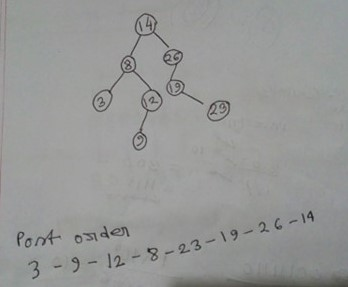 14
8
26
3
12
19
23
9
Post order
3 - 9 - 12 - 8 - 23 - 19 - 26 - 14